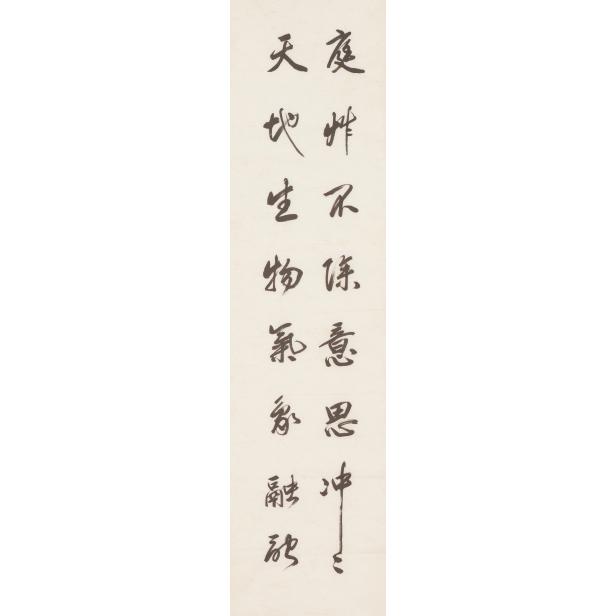 庭艸不除意思冲〻
天地生物氣象融融